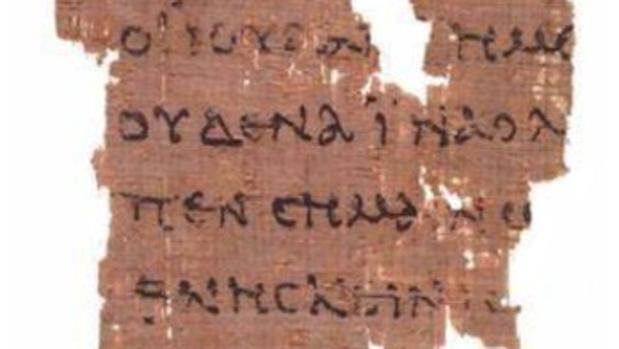 ΟΙ ΙΟΥΔΑΙ ΗΜΕ
ΟΥΔΕΝΑ ΪΝΑ Ο Λ
ΠΕΝ ϹΗΜΑΙΝΩ
ΘΝΗϹΚΕΙΝ